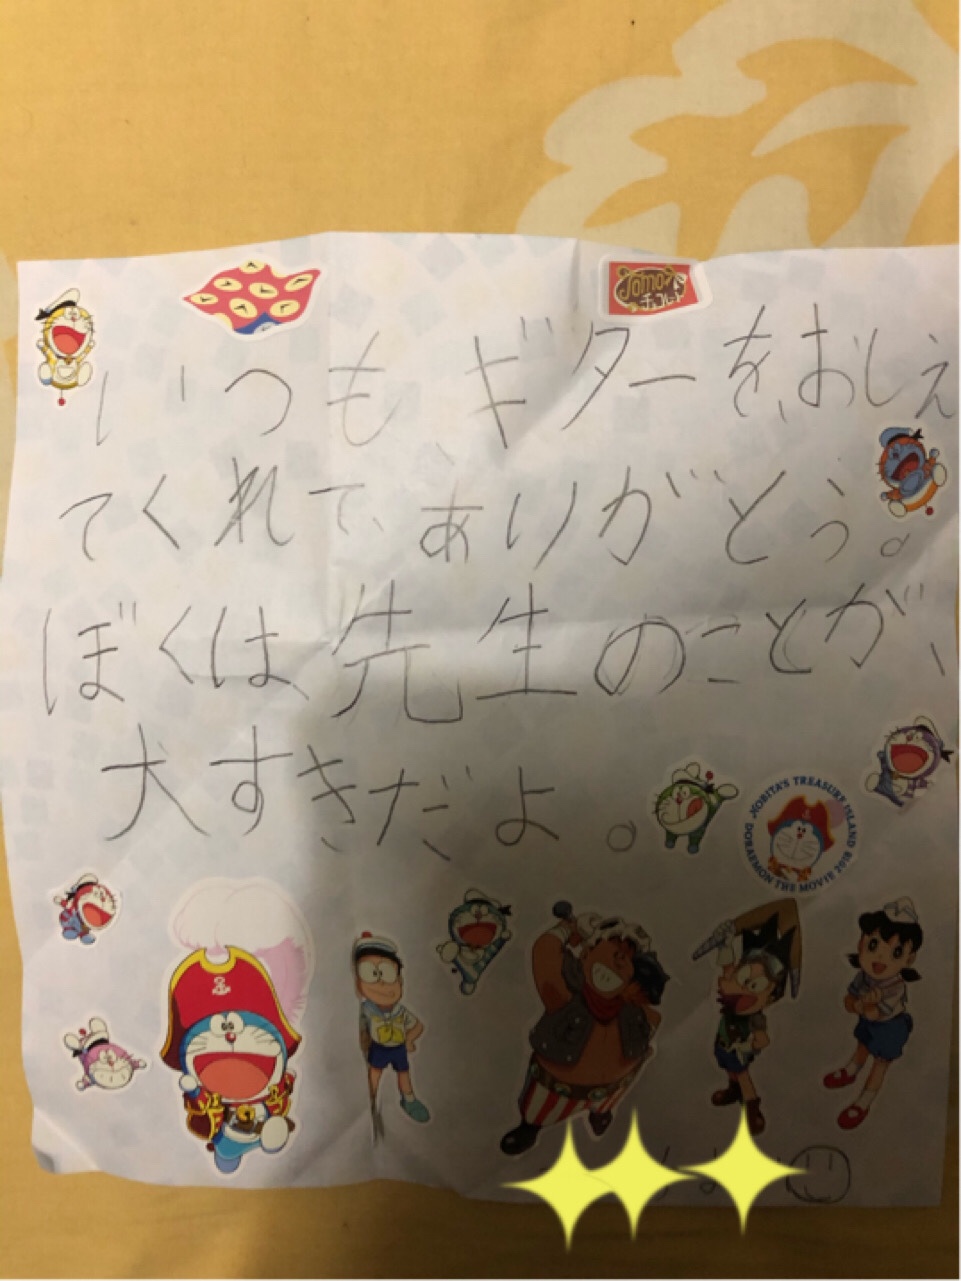 いつも、ギターを、おしえ
てくれて、ありがとう。
ぼくは、先生のことが、
大すきだよ。
Tomoろう
チョコレート
NOBITA'S TREASURE ISLAND
DORAEMON THE MOVIE 2018